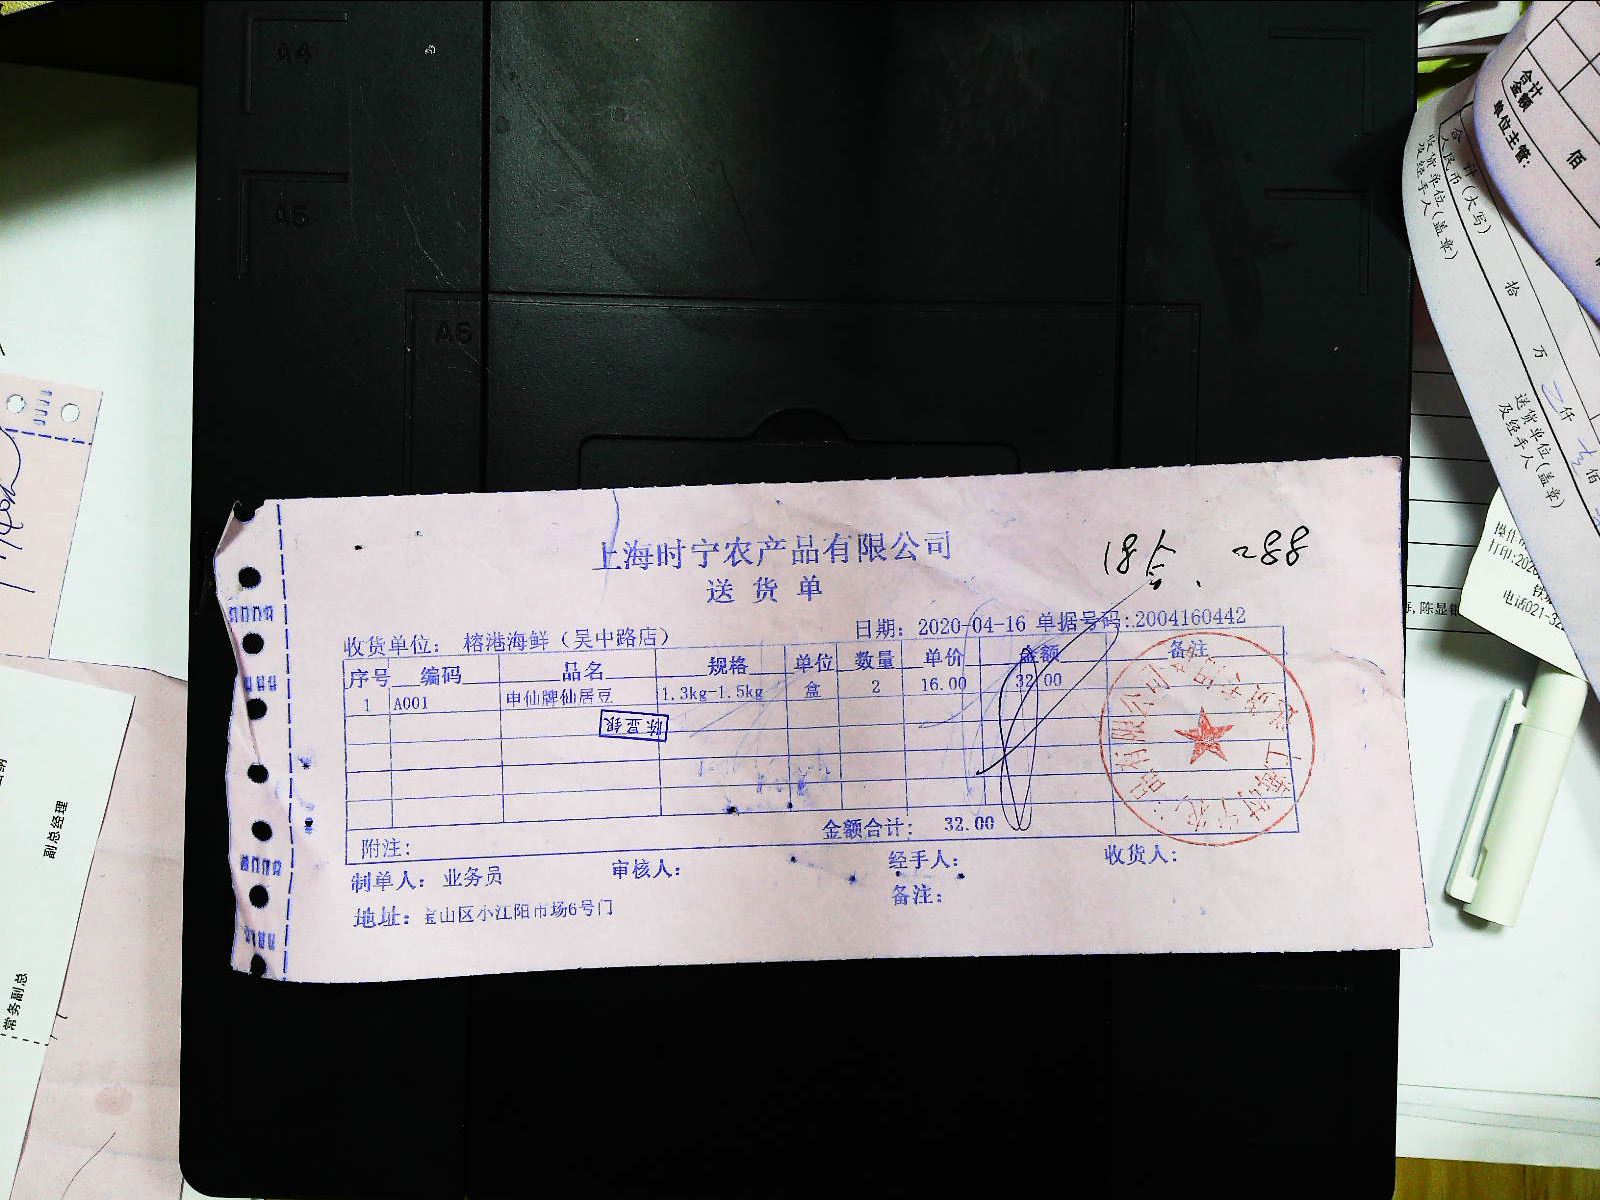 A4
A5
A6
上海时宁农产品有限公司
送货单
收货单位： 榕港海鲜（吴中路店）
日期： 2020-04-16 单据号码:2004160442
序号 编码 品名 规格 单位 数量 单价 金额 备注
1 A001 申仙牌仙居豆 1.3kg-1.5kg 盒 2 16.00 32.00
陈显银
金额合计： 32.00
附注:
制单人： 业务员 审核人： 经手人： 收货人：
备注：
地址：宝山区小江阳市场6号门
副总经理
常务副总
合计
金额
单位主管:
佰
合 计
人民币(大写)
收货单位(盖章)
及经手人
拾
万
仟
佰
送货单位(盖章)
及经手人